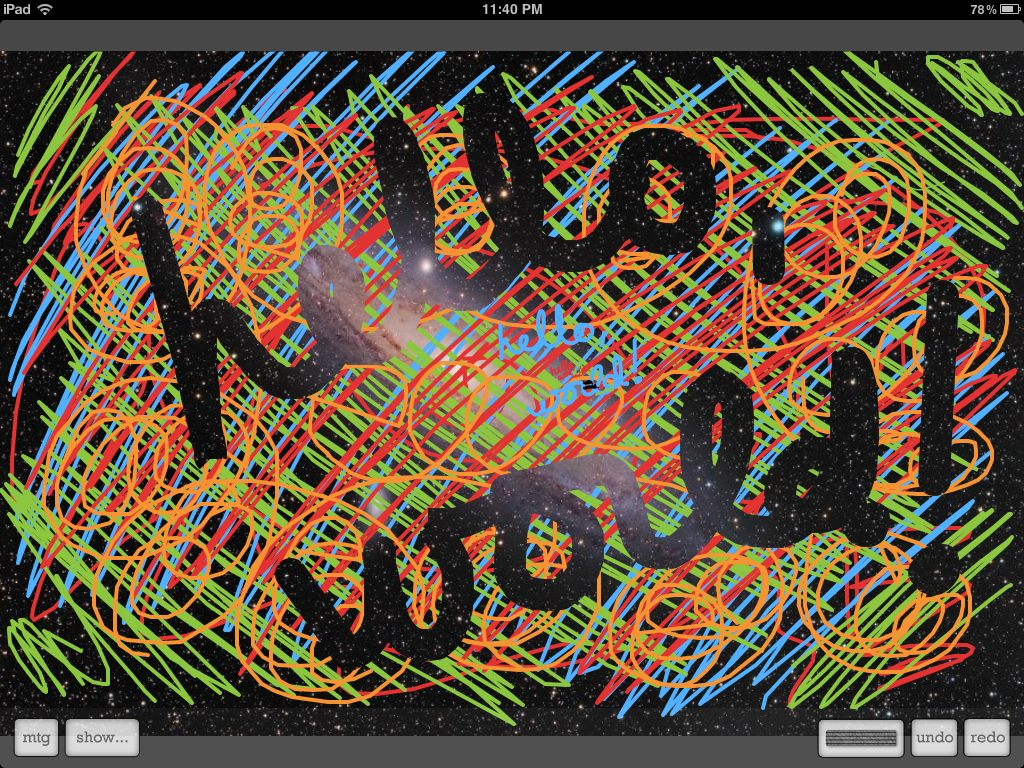 iPad 11:40 PM 78%
hello,
hello,
world!
world!
mtg show... undo redo